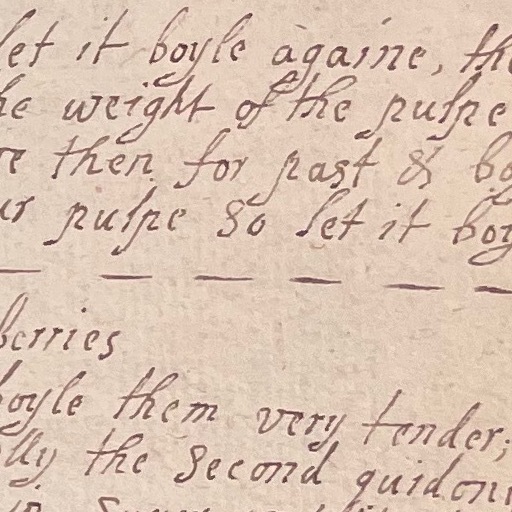 let it boyle againe, the
he weight of the pulpe
re then for past & bo
ur pulpe so let it boy
berries
boyle them very tender;
lly the second quidoni